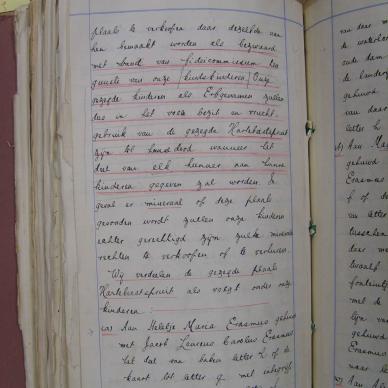 plaats te verkoopen daar dezelfde aan
hen bemaakt worden als bezwaard
met band van fideicommissum ten
gunste van onze (kindskinderen) Onze
gezegde kinderen als Erfgenamen zullen
dus in het volle bezit en vrucht-
gebruik van de gezegde Hartebeestspruit
zijn tot hun dood wanneer het
deel van elk hunner aan hunne
kinderen gegeven zal worden. In
geval er mineraal op deze plaats
gevonden wordt zullen onze kinderen
echter gerechtigd zijn zulke mineraal
rechten te verkoopen of te verhuren.
Wij verdeelen de gezegde plaats
Hartebeestspruit als volgt onder onze
kinderen:
Aan Heletje Maria Erasmus gehuwd
met Jacob Lourens Carolus Erasmus
het deel van baken letter L of de
kaart tot letter g. met inbegrip
van daar
de waterlei
oude dam
de landery
gehuwd
van daar
letter h
Aan Ma
gehuwd
Erasmus
f of de
van letter
tusschen
daar de
twaalf
fonteintj
met de
lijn van
gehuwd
Erasmus
was